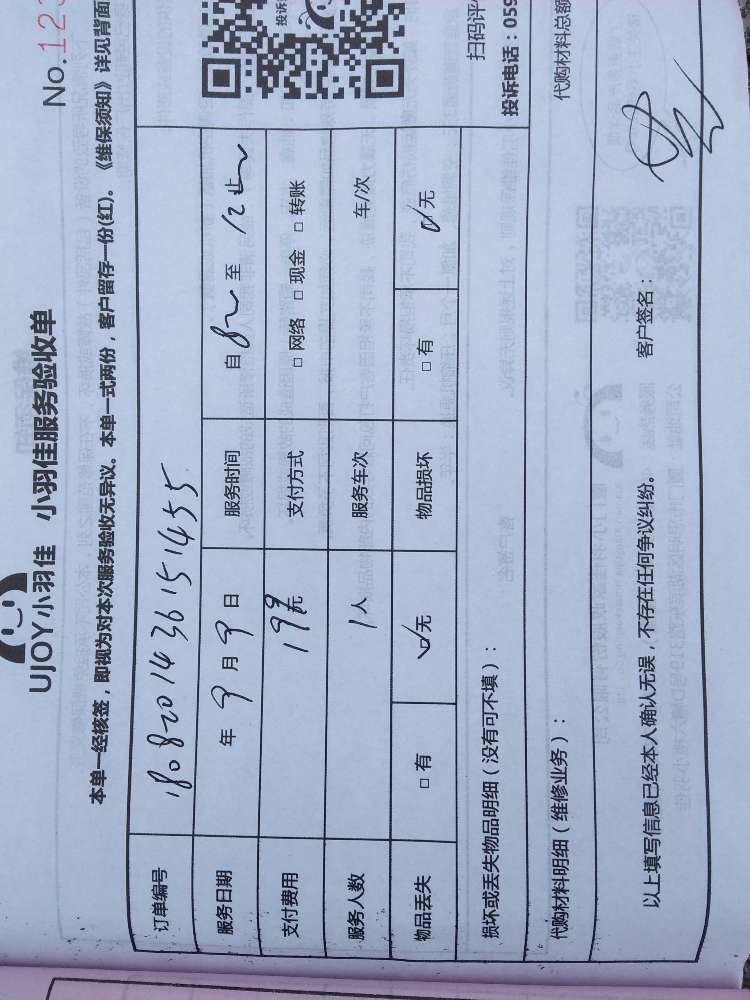 UJOY小羽佳 小羽佳服务验收单
No.123
本单一经核签，即视为对本次服务验收无异议。本单一式两份，客户留存一份(红)。《维保须知》详见背面
订单编号 180820143615 1455
服务日期 年 9 月 9 日 服务时间 自 8 至 12 止
支付费用 199元 支付方式 □ 网络 □ 现金 □ 转账
服务人数 1人 服务车次 车/次
物品丢失 □ 有 ☑无 物品损坏 □ 有 ☑无
损坏或丢失物品明细（没有可不填）：
投诉
扫码评
投诉电话：059
代购材料明细（维修业务）：
代购材料总额
以上填写信息已经本人确认无误，不存在任何争议纠纷。 客户签名：